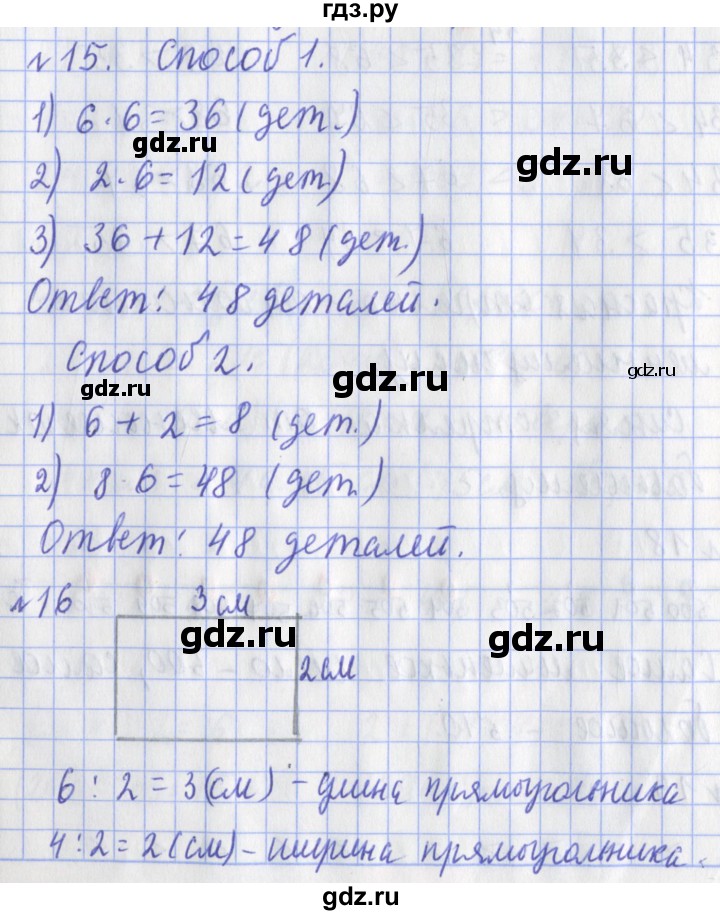 гдз.ру
№15. Способ 1.
1) 6·6=36(дет.)
gdz.ru
gdz.ru
2) 2·6=12(дет)
3) 36+12=48(дет.)
gdz.ru
Ответ: 48 деталей.
Способ 2.
gdz.ru
gdz.ru
gdz.ru
1) 6+2=8 (дет.)
2) 8·6=48 (дет.)
gdz.ru
gdz.ru
Ответ: 48 деталей.
№16
3 см
gdz.ru
gdz.ru
2 см
6:2=3(см) - длина прямоугольника
gdz.ru
gdz.ru
4:2=2(см) - ширина прямоугольника.
gdz.ru